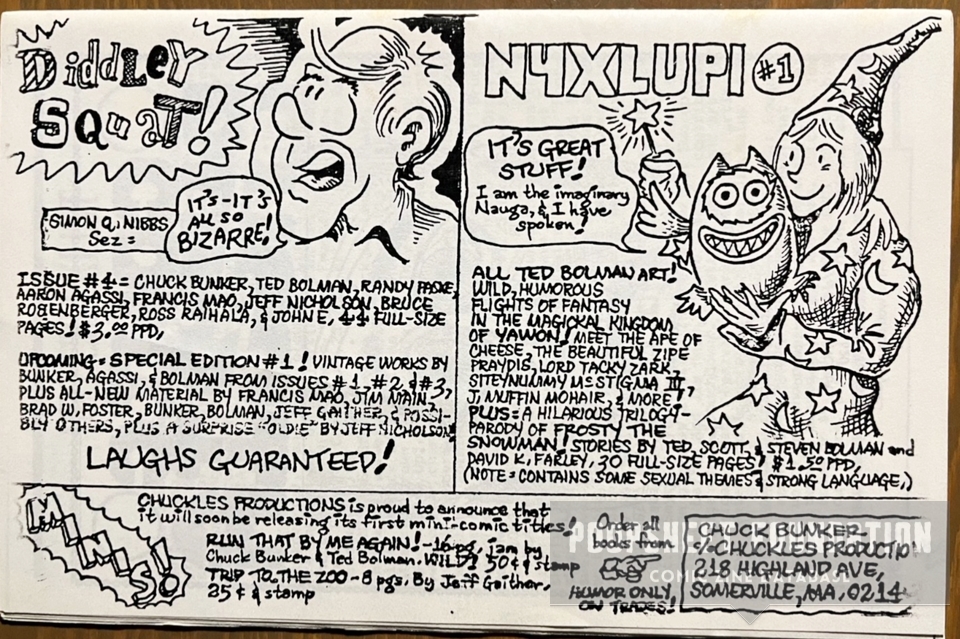 Diddley
Squat!
IT'S-IT'S
ALL SO
BIZARRE!
SIMON Q. NIBBS
Sez:
ISSUE #4 = CHUCK BUNKER, TED BOLMAN, RANDY PASKE,
AARON AGASSI, FRANCIS MAO, JEFF NICHOLSON, BRUCE
ROSENBERGER, ROSS RAIHALA, & JOHN E, 44 FULL-SIZE
PAGES! $3.00 PPD,
UPCOMING = SPECIAL EDITION #1! VINTAGE WORKS BY
BUNKER, AGASSI, & BOLMAN FROM ISSUES #1, #2, & #3,
PLUS ALL-NEW MATERIAL BY FRANCIS MAO, JIM MAIN,
BRAD W. FOSTER, BUNKER, BOLMAN, JEFF GAITHER, & POSSI-
BLY OTHERS, PLUS A SURPRISE "OLDIE" BY JEFF NICHOLSON!
LAUGHS GUARANTEED!
N4XLUPI #1
IT'S GREAT
STUFF!
I am the imaginary
Nauga, & I have
spoken!
ALL TED BOLMAN ART!
WILD, HUMOROUS
FLIGHTS OF FANTASY
IN THE MAGICKAL KINGDOM
OF YAWON! MEET THE APE OF
CHEESE, THE BEAUTIFUL ZIPE
PRAYDIS, LORD TACKY ZARK,
SITEYNUMMY MCSTIGMA III,
J. MUFFIN MOHAIR, & MORE!
PLUS = A HILARIOUS TRILOGY-
PARODY OF FROSTY THE
SNOWMAN! STORIES BY TED, SCOTT, & STEVEN BOLMAN and
DAVID K. FARLEY, 30 FULL-SIZE PAGES! $1.50 PPD,
(NOTE = CONTAINS SOME SEXUAL THEMES & STRONG LANGUAGE,)
MINIS!
CHUCKLES PRODUCTIONS is proud to announce that
it will soon be releasing its first mini-comic titles!
RUN THAT BY ME AGAIN! - 16 pg. jam by
Chuck Bunker & Ted Bolman. WILD! 50¢ & stamp
TRIP TO THE ZOO - 8 pgs. By Jeff Gaither,
35¢ & stamp
Order all
books from:
HUMOR ONLY
ON TRADES!
CHUCK BUNKER
c/o CHUCKLES PRODUCTIO
218 HIGHLAND AVE,
SOMERVILLE, MA, 0214
COMIC ZINE DATABASE